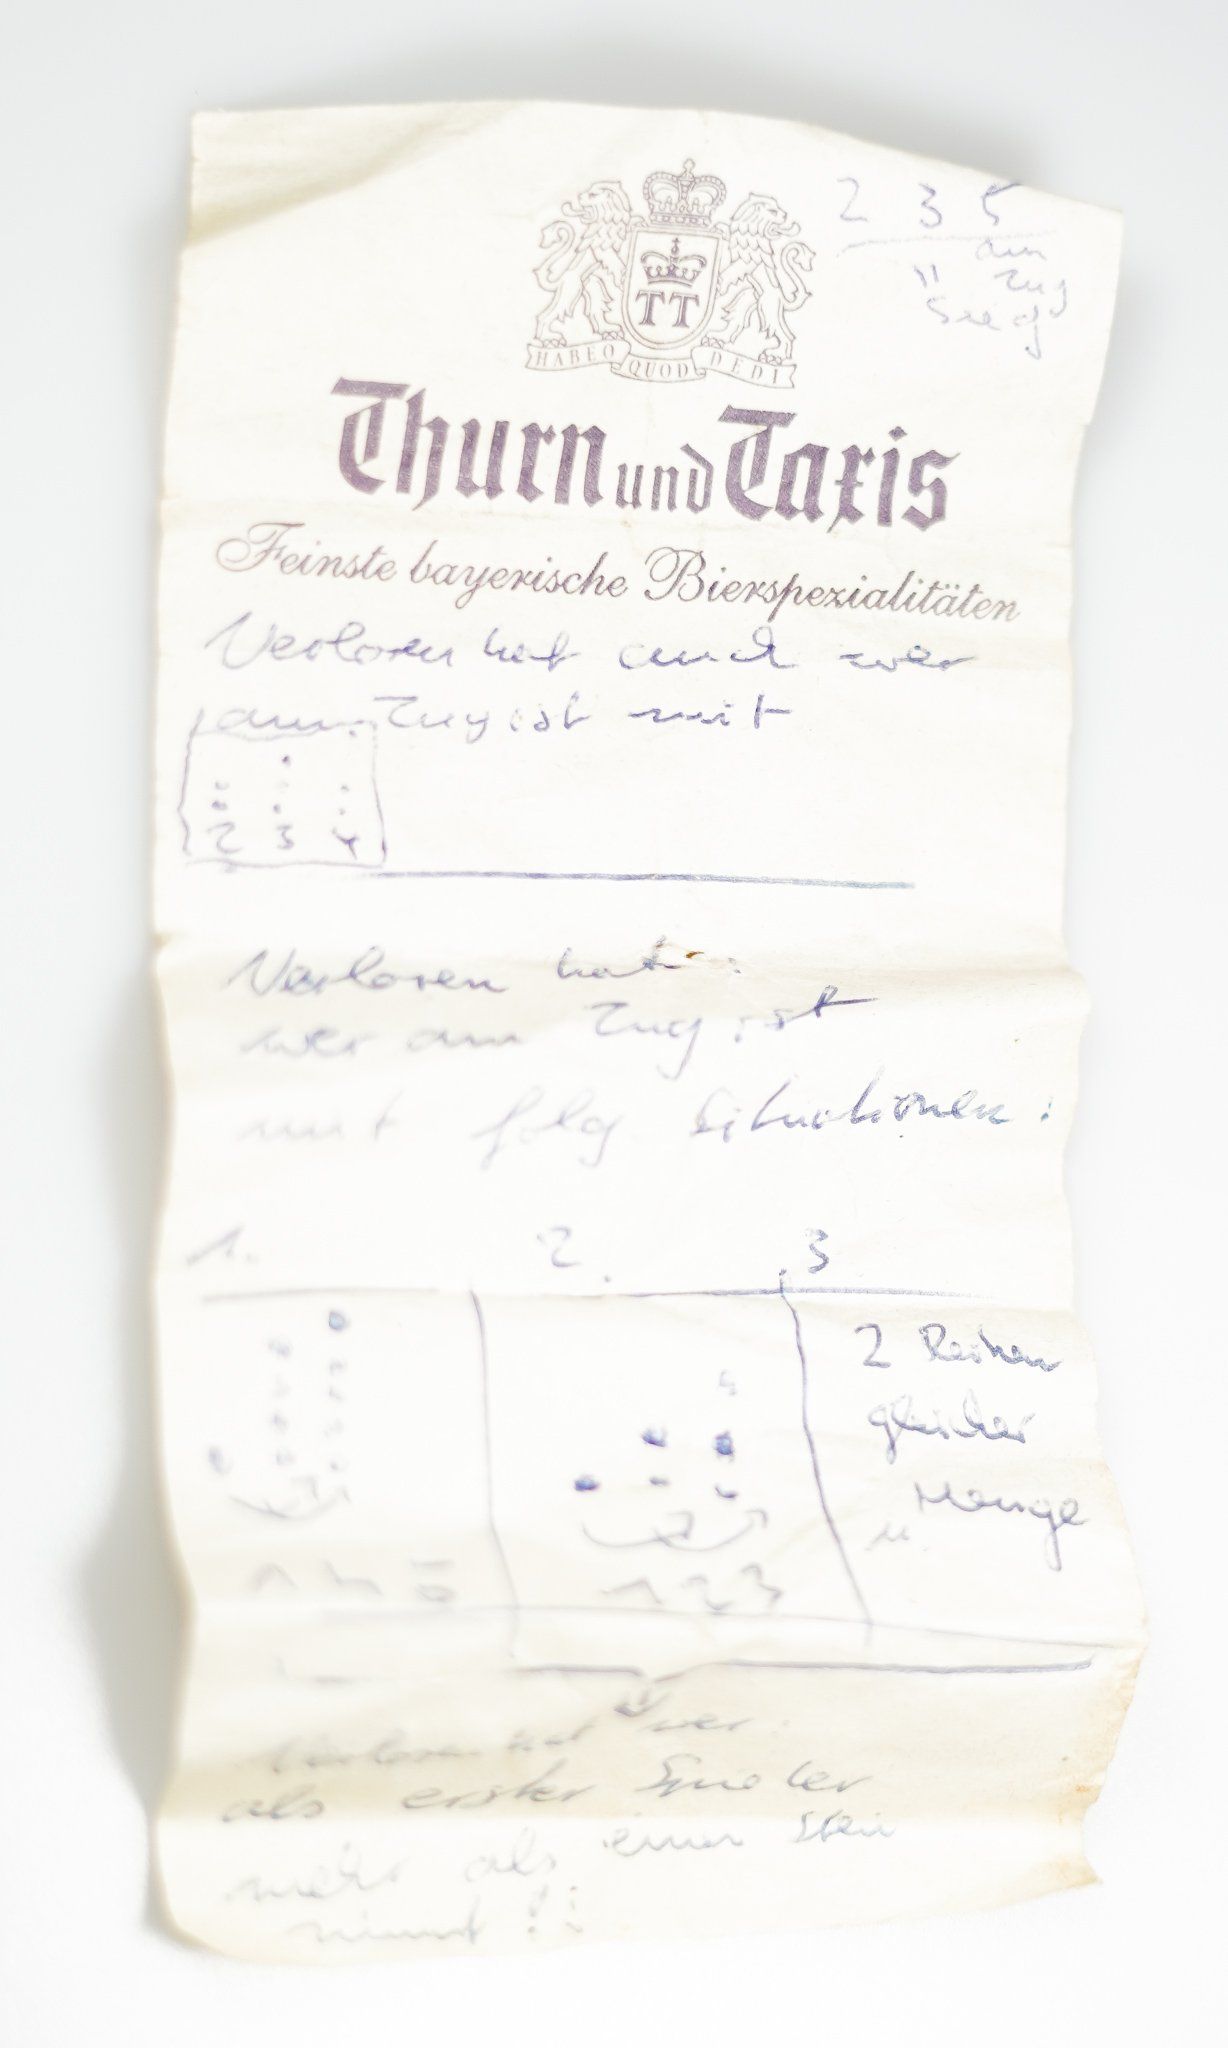 2 3 5
am
" Zug
Sieg
HABEO QUOD DEDI
TT
Thurn und Taxis
Feinste bayerische Bierspezialitäten
Verloren hat auch wer
am Zug ist mit
2 3 4
Verloren hat:
wer am Zug ist
mit folg. Situationen:
1. 2. 3
2 Reihen
gleicher
Menge
1 2 3
Verloren hat wer:
als erster Spieler
mehr als einen Stein
nimmt!!